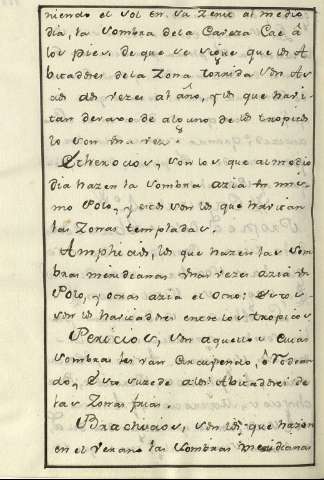 niendo el sol en su Zenit al medio
dia, la sombra dela Caveza Cae á
los pies. de que se sigue que los A
bitadores dela Zona torrida son As
cios dos vezes al año, y los que havi
tan devaxo de alguno de los tropicos
lo son una vez.
Etherocios, son los que al medio
dia hazen la sombra azia un mis
mo Polo, y estos son los que havitan
las Zonas templadas.
Amphicios, los que hazen las som
bras meridianas unas vezes azia un
Polo, y otras azia el otro: Estos
son los havitadores entre los tropicos
Pericios, son aquellos cuias
sombras les van circuyendo, ô rodean
do, Esto sucede a los Abitadores de
las Zonas frias.
Brachiscios, son los que hazen
en el verano las sombras meridianas